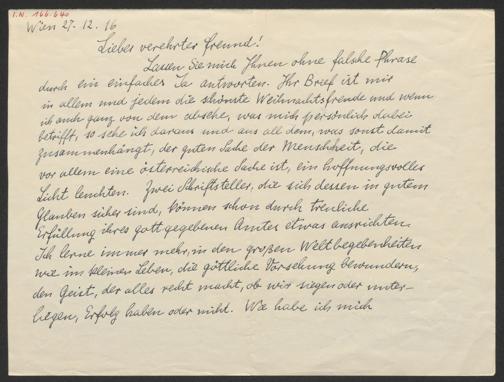 I.N. 166.640
Wien 27.12.16
Lieber verehrter Freund!
Lassen Sie mich Ihnen ohne falsche Phrase
durch ein einfaches Ja antworten. Ihr Brief ist mir
in allem und jedem die schönste Weihnachtsfreude und wenn
ich auch ganz von dem absehe, was mich persönlich dabei
betrifft, so sehe ich daraus und aus all dem, was sonst damit
zusammenhängt, der guten Sache der Menschheit, die
vor allem eine österreichische Sache ist, ein hoffnungsvolles
Licht leuchten. Zwei Schriftsteller, die sich dessen in gutem
Glauben sicher sind, können schon durch treuliche
Erfüllung ihres gottgegebenen Amtes etwas ausrichten.
Ich lerne immer mehr, in den großen Weltbegebenheiten
wie im kleinen Leben, die göttliche Vorsehung bewundern,
den Geist, der alles recht macht, ob wir siegen oder unter-
liegen, Erfolg haben oder nicht. Wie habe ich mich